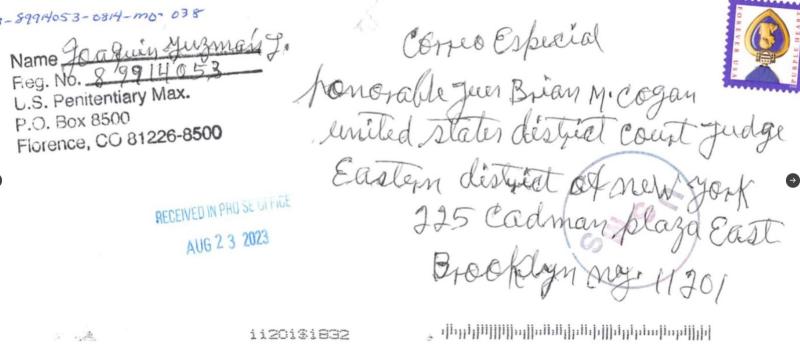 8-89914053-0814-mo-038
Name Joaquin Guzmán L.
Reg. No. 89914053
U.S. Penitentiary Max.
P.O. Box 8500
Florence, CO 81226-8500
Correo Especial
honorable juez Brian M. Cogan
united states district court judge
Eastern district of new york
225 Cadman plaza East
Brooklyn ny. 11201
PURPLE HEART
FOREVER USA
RECEIVED IN PRO SE OFFICE
AUG 23 2023
11201$1832